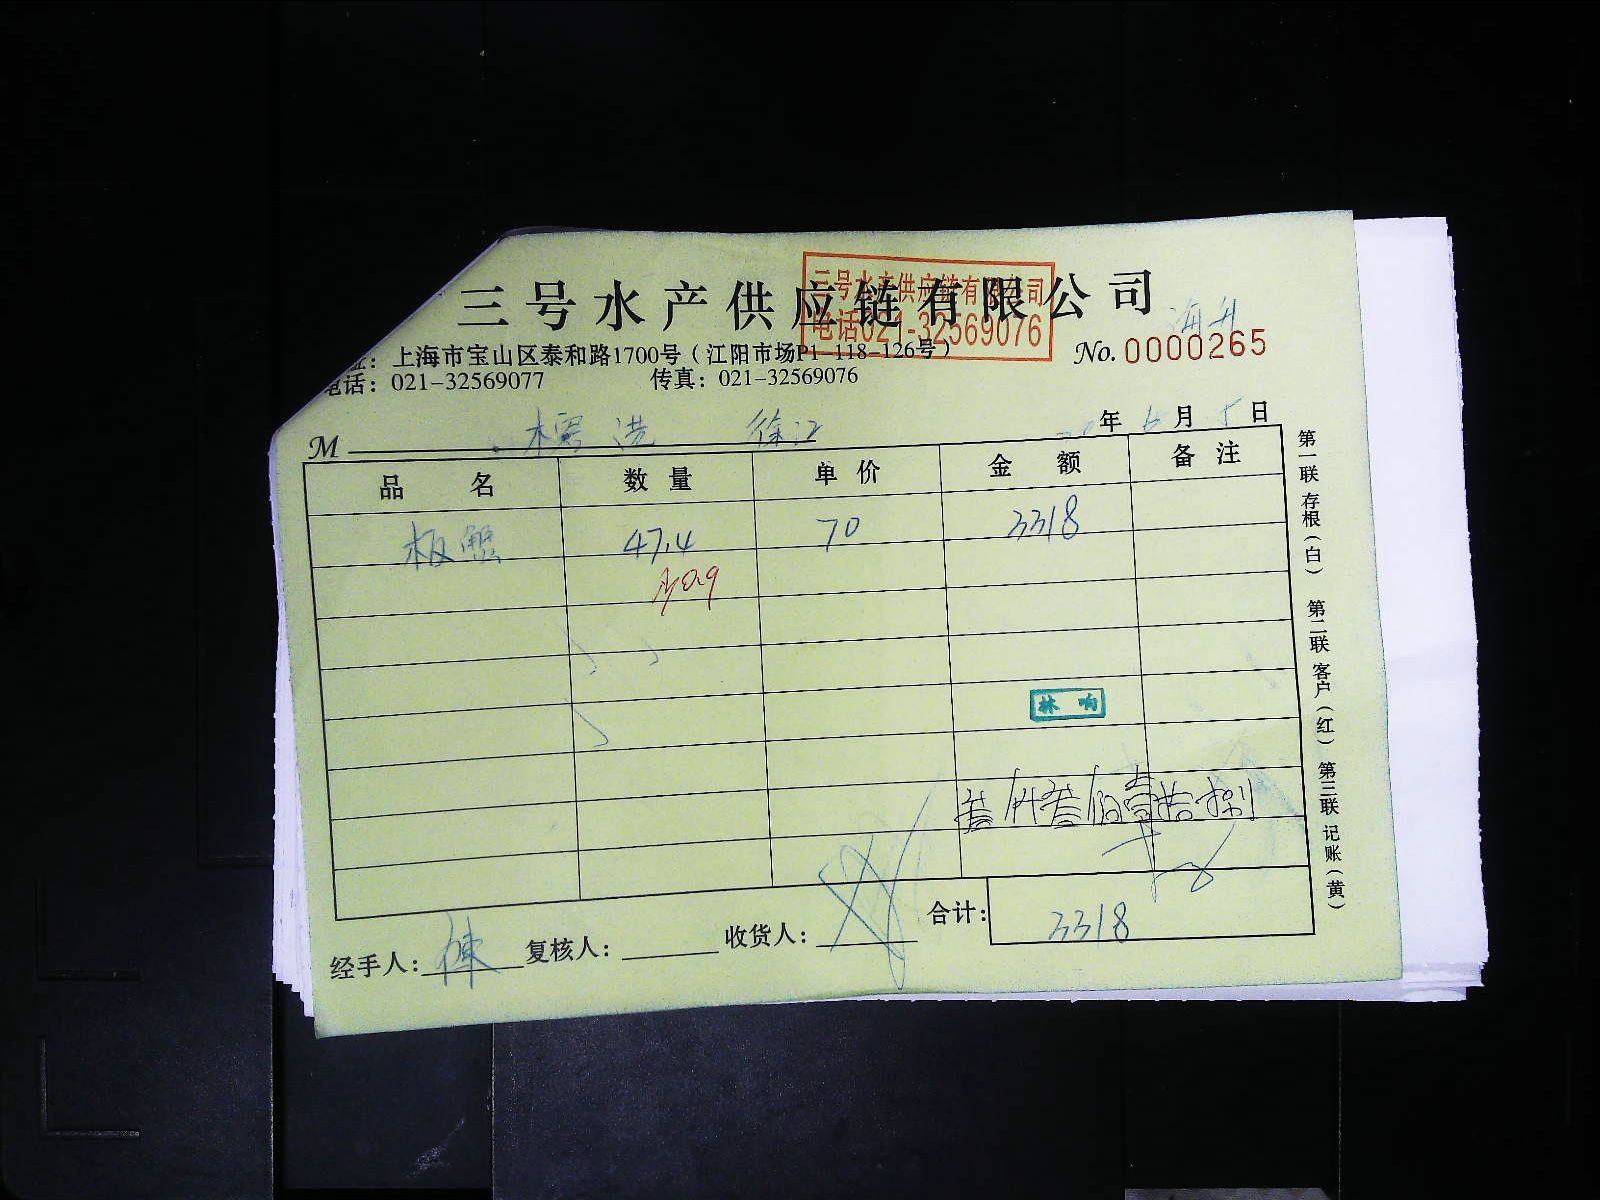 三号水产供应链有限公司
三号水产供应链有限公司
电话021-32569076
海升
址：上海市宝山区泰和路1700号（江阳市场P1-118-126号）
No.0000265
电话：021-32569077 传真：021-32569076
M 徐江
20年6月5日
品名 数量 单价 金额 备注
板蟹 47.4 70 3318
林响
叁仟叁佰壹拾捌
合计：3318
经手人：陳 复核人： 收货人：
第一联 存根（白） 第二联 客户（红） 第三联 记账（黄）